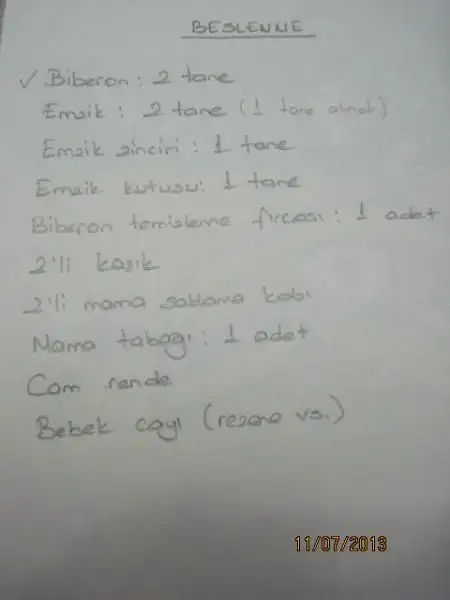 BESLENME
✓ Biberon : 2 tane
Emzik : 2 tane (1 tane alındı)
Emzik zinciri : 1 tane
Emzik kutusu : 1 tane
Biberon temizleme fırçası : 1 adet
2'li kaşık
2'li mama saklama kabı
Mama tabağı : 1 adet
Cam rende
Bebek çayı (rezene vs.)
11/07/2013